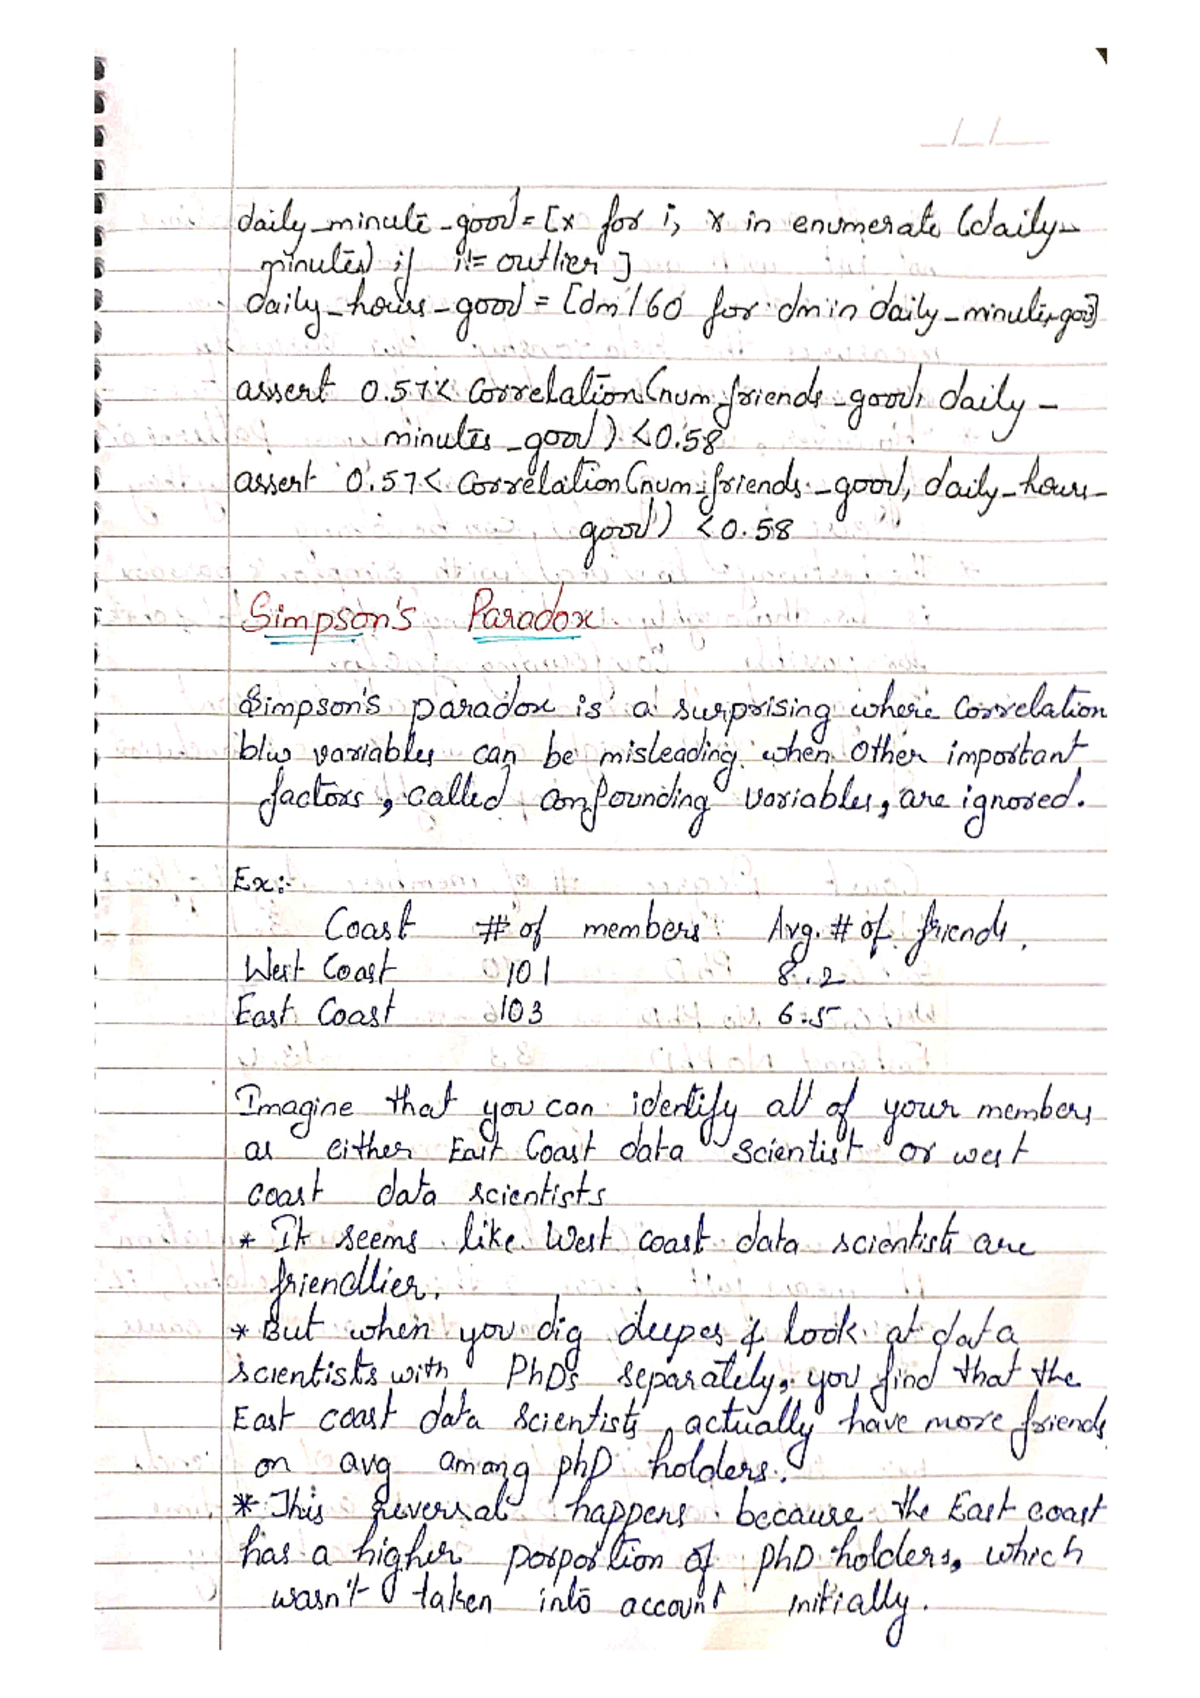 daily_minute_good = [x for i, x in enumerate (daily_
minutes) if i != outlier ]
daily_hours_good = [dm / 60 for dm in daily_minutes_good]
assert 0.57 < Correlation (num_friends_good, daily_
minutes_good) < 0.58
assert 0.57 < Correlation (num_friends_good, daily_hours_
good) < 0.58
Simpson's Paradox
Simpson's paradox is a surprising where Correlation
b/w variables can be misleading when other important
factors, called confounding variables, are ignored.
Ex:-
Coast # of members Avg. # of friends.
West Coast 101 8.2
East Coast 103 6.5
Imagine that you can identify all of your members
as either East Coast data scientist or west
coast data scientists
* It seems like West coast data scientists are
friendlier.
* But when you dig deeper & look at data
scientists with PhDs separately, you find that the
East coast data scientists actually have more friends
on avg among phD holders.
* This reversal happens because the East coast
has a higher porportion of phD holders, which
wasn't taken into account initially.